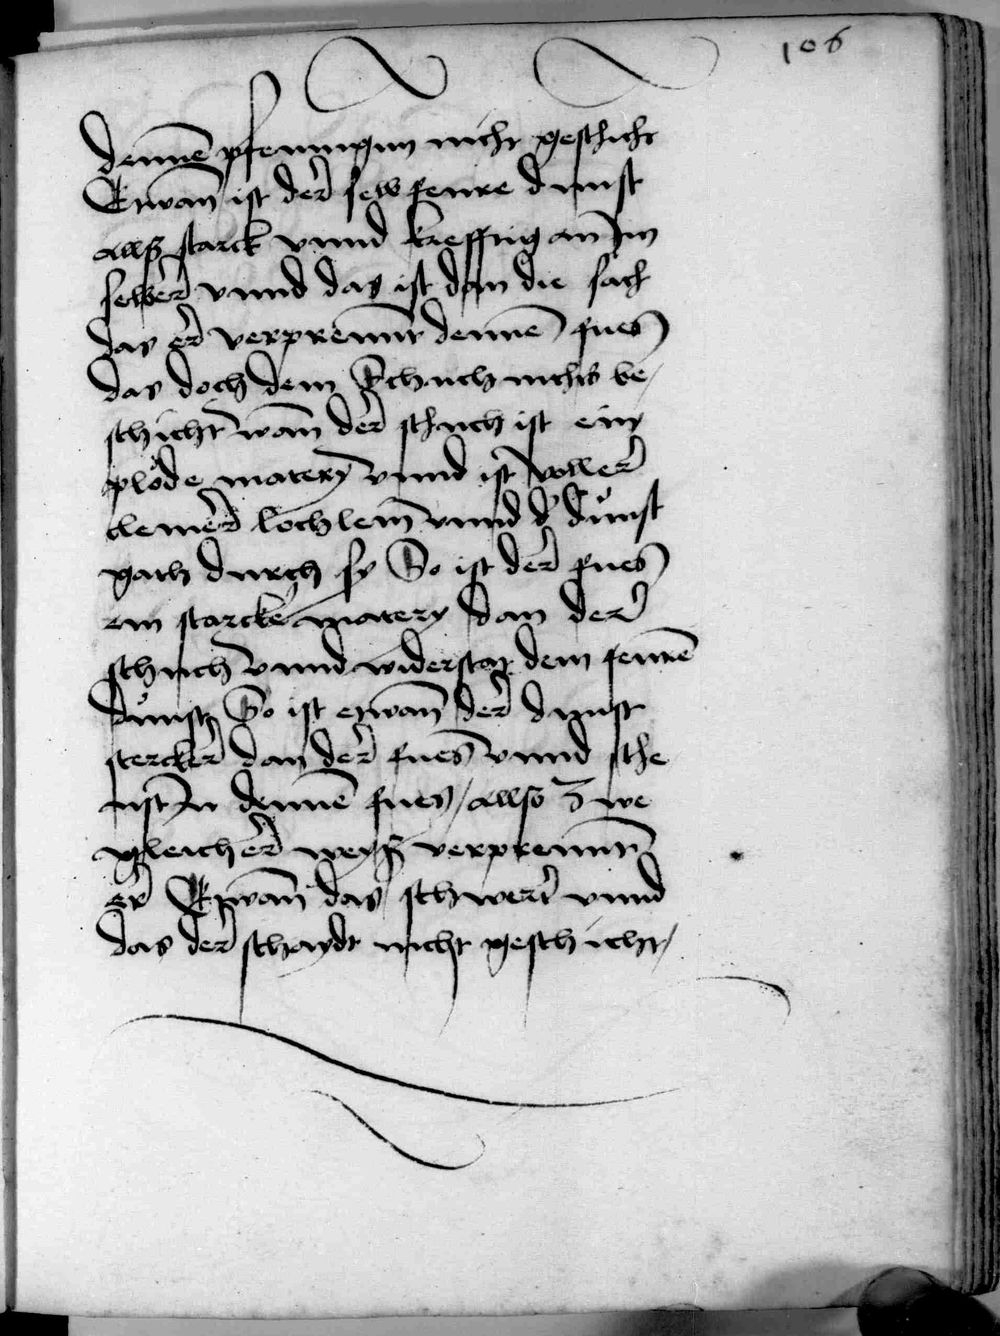 106
dennē pfenningnn nicht geschicht
Etwan̄ ist der selb feure dunst
allß starck vnnd krefftig an Jm
selber vnnd das ist dan die sach
das er verprennt dennē fues
das doch dem Schuch nichts be/
schicht wan̄ der schuch ist ein
plöde matery vnnd ist voller
clener löchlein vnnd d' důnst
gath durch sy So ist der fues
ein starcke matery dan der
schuch vnnd widerstat dem feurē
důnst So ist etwan̄ der dunst
stercker dan der fues vnnd sthe
ist Jn dennē fues / allso Z we
gleicher weyß verprennt
er Etwan̄ das schwert vnnd
das der schaydt nicht geschicht /